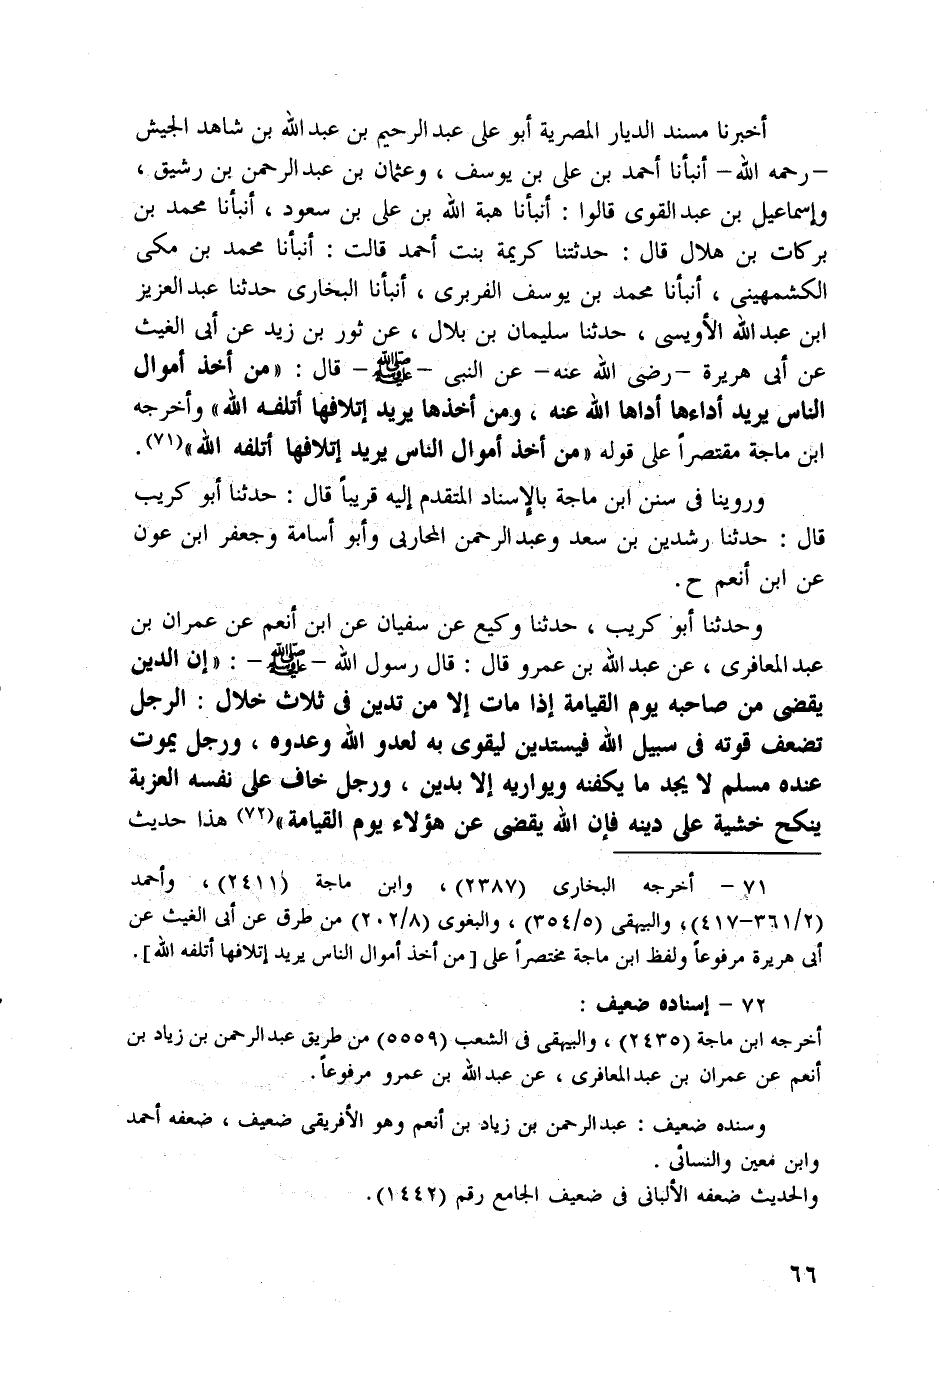 أخبرنا مسند الديار المصرية أبو على عبد الرحيم بن عبد الله بن شاهد الجيش
–رحمه الله– أنبأنا أحمد بن على بن يوسف ، وعثمان بن عبد الرحمن بن رشيق ،
وإسماعيل بن عبد القوى قالوا : أنبأنا هبة الله بن على بن سعود ، أنبأنا محمد بن
بركات بن هلال قال : حدثتنا كريمة بنت أحمد قالت : أنبأنا محمد بن مكى
الكشمهينى ، أنبأنا محمد بن يوسف الفربرى ، أنبأنا البخارى حدثنا عبد العزيز
ابن عبد الله الأويسى ، حدثنا سليمان بن بلال ، عن ثور بن زيد عن أبى الغيث
عن أبى هريرة –رضى الله عنه– عن النبى –ﷺ– قال : «من أخذ أموال
الناس يريد أداءها أداها الله عنه ، ومن أخذها يريد إتلافها أتلفه الله» وأخرجه
ابن ماجة مقتصراً على قوله «من أخذ أموال الناس يريد إتلافها أتلفه الله»(٧١).
وروينا فى سنن ابن ماجة بالإسناد المتقدم إليه قريباً قال : حدثنا أبو كريب
قال : حدثنا رشدين بن سعد وعبد الرحمن المحاربى وأبو أسامة وجعفر ابن عون
عن ابن أنعم ح.
وحدثنا أبو كريب ، حدثنا وكيع عن سفيان عن ابن أنعم عن عمران بن
عبد المعافرى ، عن عبد الله بن عمرو قال : قال رسول الله –ﷺ– : «إن الدين
يقضى من صاحبه يوم القيامة إذا مات إلا من تدين فى ثلاث خلال : الرجل
تضعف قوته فى سبيل الله فيستدين ليقوى به لعدو الله وعدوه ، ورجل يموت
عنده مسلم لا يجد ما يكفنه ويواريه إلا بدين ، ورجل خاف على نفسه العزبة
ينكح خشية على دينه فإن الله يقضى عن هؤلاء يوم القيامة»(٧٢) هذا حديث
٧١ – أخرجه البخارى (٢٣٨٧) ، وابن ماجة (٢٤١١) ، وأحمد
(٣٦١/٢–٤١٧)، والبيهقى (٣٥٤/٥) ، والبغوى (٢٠٢/٨) من طرق عن أبى الغيث عن
أبى هريرة مرفوعاً ولفظ ابن ماجة مختصراً على [من أخذ أموال الناس يريد إتلافها أتلفه الله].
٧٢ – إسناده ضعيف :
أخرجه ابن ماجة (٢٤٣٥) ، والبيهقى فى الشعب (٥٥٥٩) من طريق عبد الرحمن بن زياد بن
أنعم عن عمران بن عبد المعافرى ، عن عبد الله بن عمرو مرفوعاً.
وسنده ضعيف : عبد الرحمن بن زياد بن أنعم وهو الأفريقى ضعيف ، ضعفه أحمد
وابن معين والنسائى .
والحديث ضعفه الألبانى فى ضعيف الجامع رقم (١٤٤٢).
٦٦